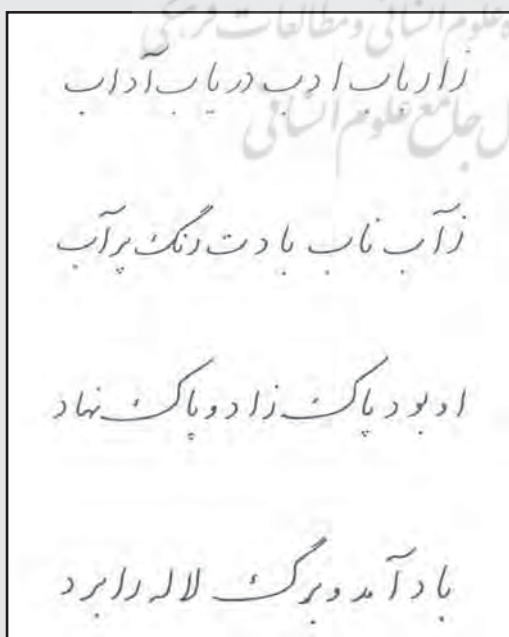 علوم انسانی و مطالعات فرهنگی
جامع علوم انسانی
ز ارباب ادب دریاب آداب
ز آب ناب بادت رنگ پر آب
او بود پاک زاد و پاک نهاد
باد آمد و برگ لاله را برد